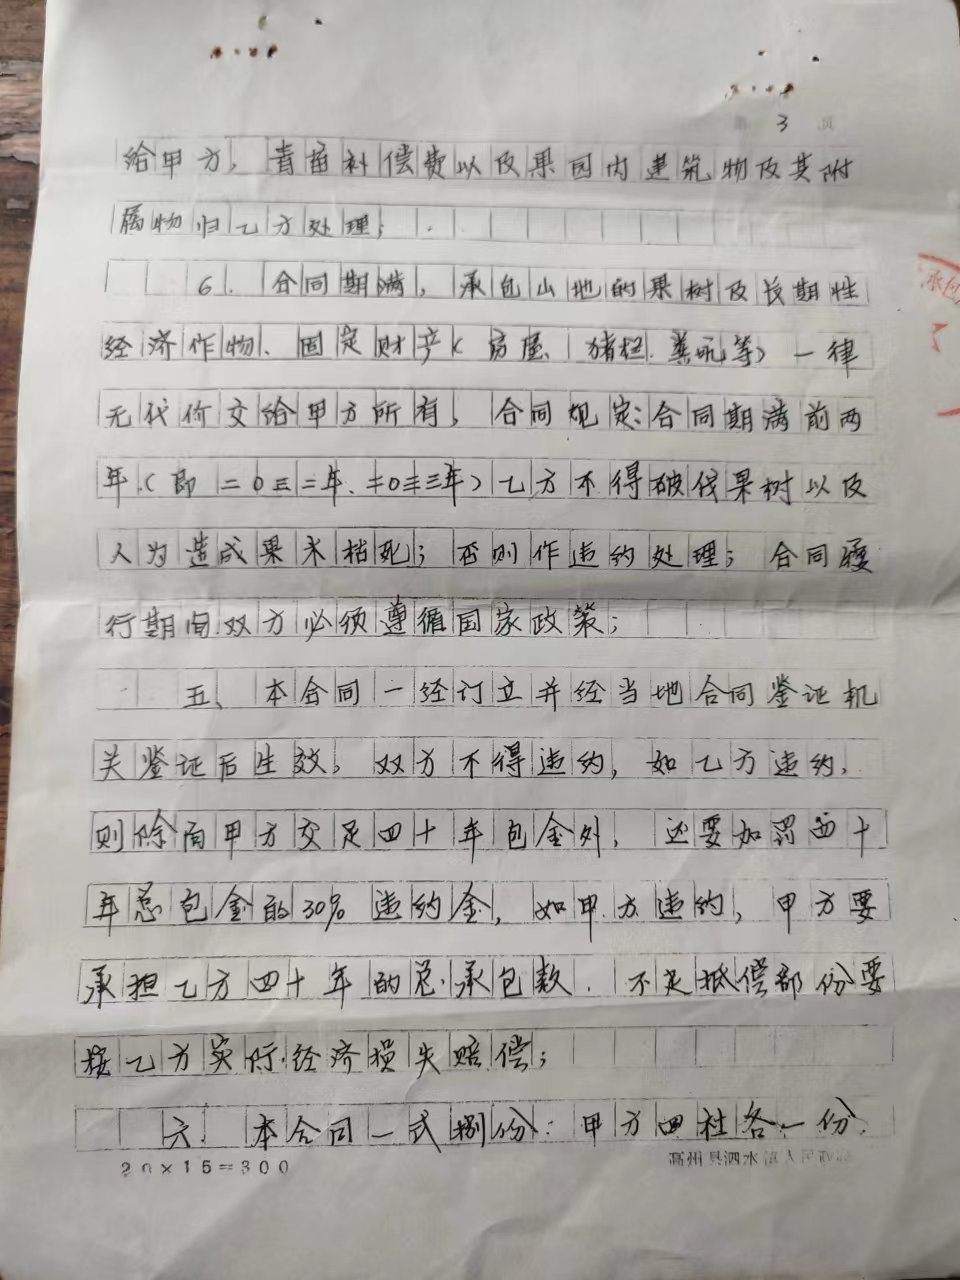 第 3 页
给甲方，青苗补偿费以及果园内建筑物及其附
属物归乙方处理；
6. 合同期满，承包山地的果树及长期性
经济作物、固定财产（房屋、猪栏、粪坑等）一律
无代价交给甲方所有，合同规定：合同期满前两
年（即二0三二年、二0三三年）乙方不得破伐果树以及
人为造成果木枯死；否则作违约处理；合同履
行期间双方必须遵循国家政策；
五、本合同一经订立并经当地合同鉴证机
关鉴证后生效。双方不得违约，如乙方违约，
则除向甲方交足四十年包金外，还要加罚四十
年总包金的30%违约金，如甲方违约，甲方要
承担乙方四十年的总承包款．不足抵偿部份要
按乙方实际经济损失赔偿；
六、本合同一式捌份：甲方四社各一份．
20×15=300
高州县泗水镇人民政府
承包